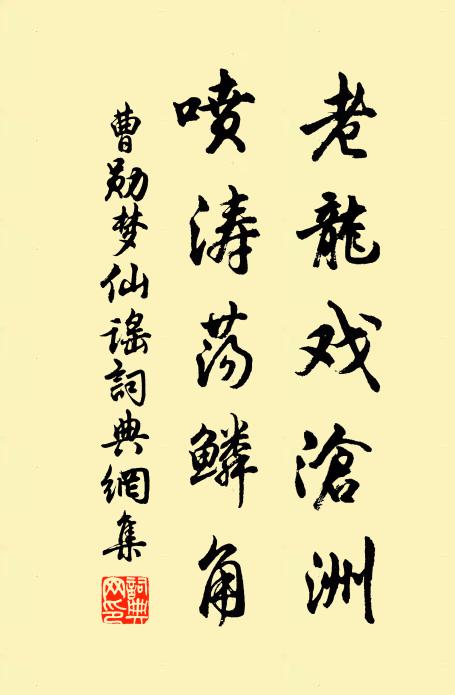 老龍戏滄洲
喷涛荡鳞角
曹勋梦仙谣詞典網集
詞典网印